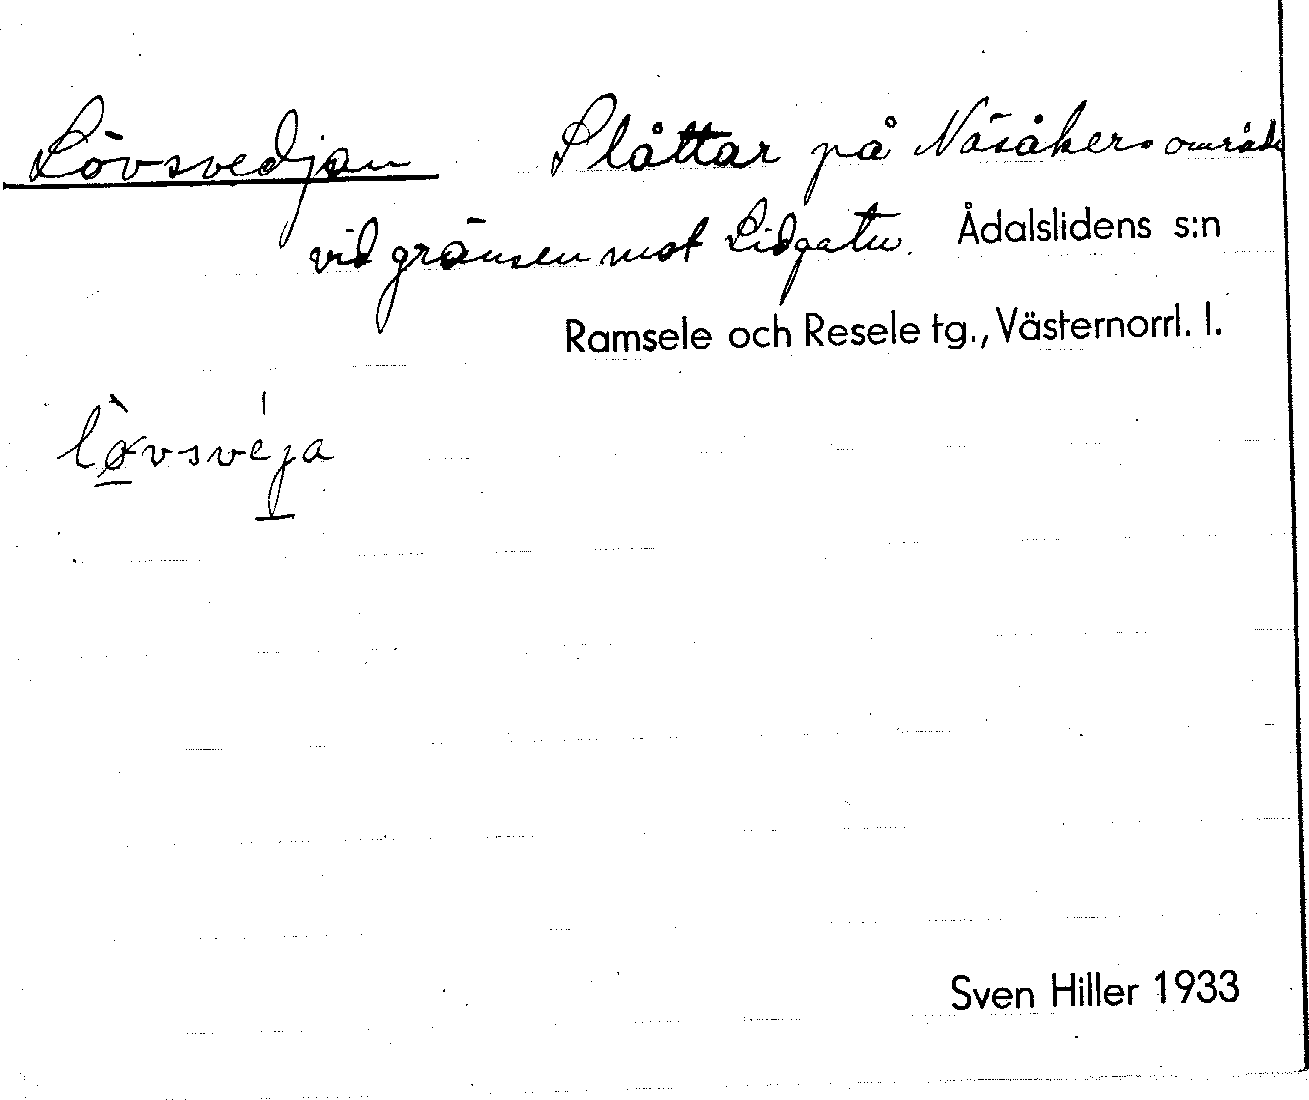 Lövsvedjan Slåttar på Näsåkers område
vid gränsen mot Lidgatu. Ådalslidens s:n
Ramsele och Resele tg., Västernorrl. l.
lø̀vsvéja
Sven Hiller 1933